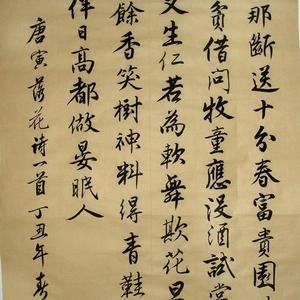 那斷送十分春富貴園
貧借問牧童應没酒試嘗
又生仁若為軟舞欺花旦
餘香笑樹神料得青鞋
伴日高都做晏眠人
唐寅落花詩一首丁丑年春